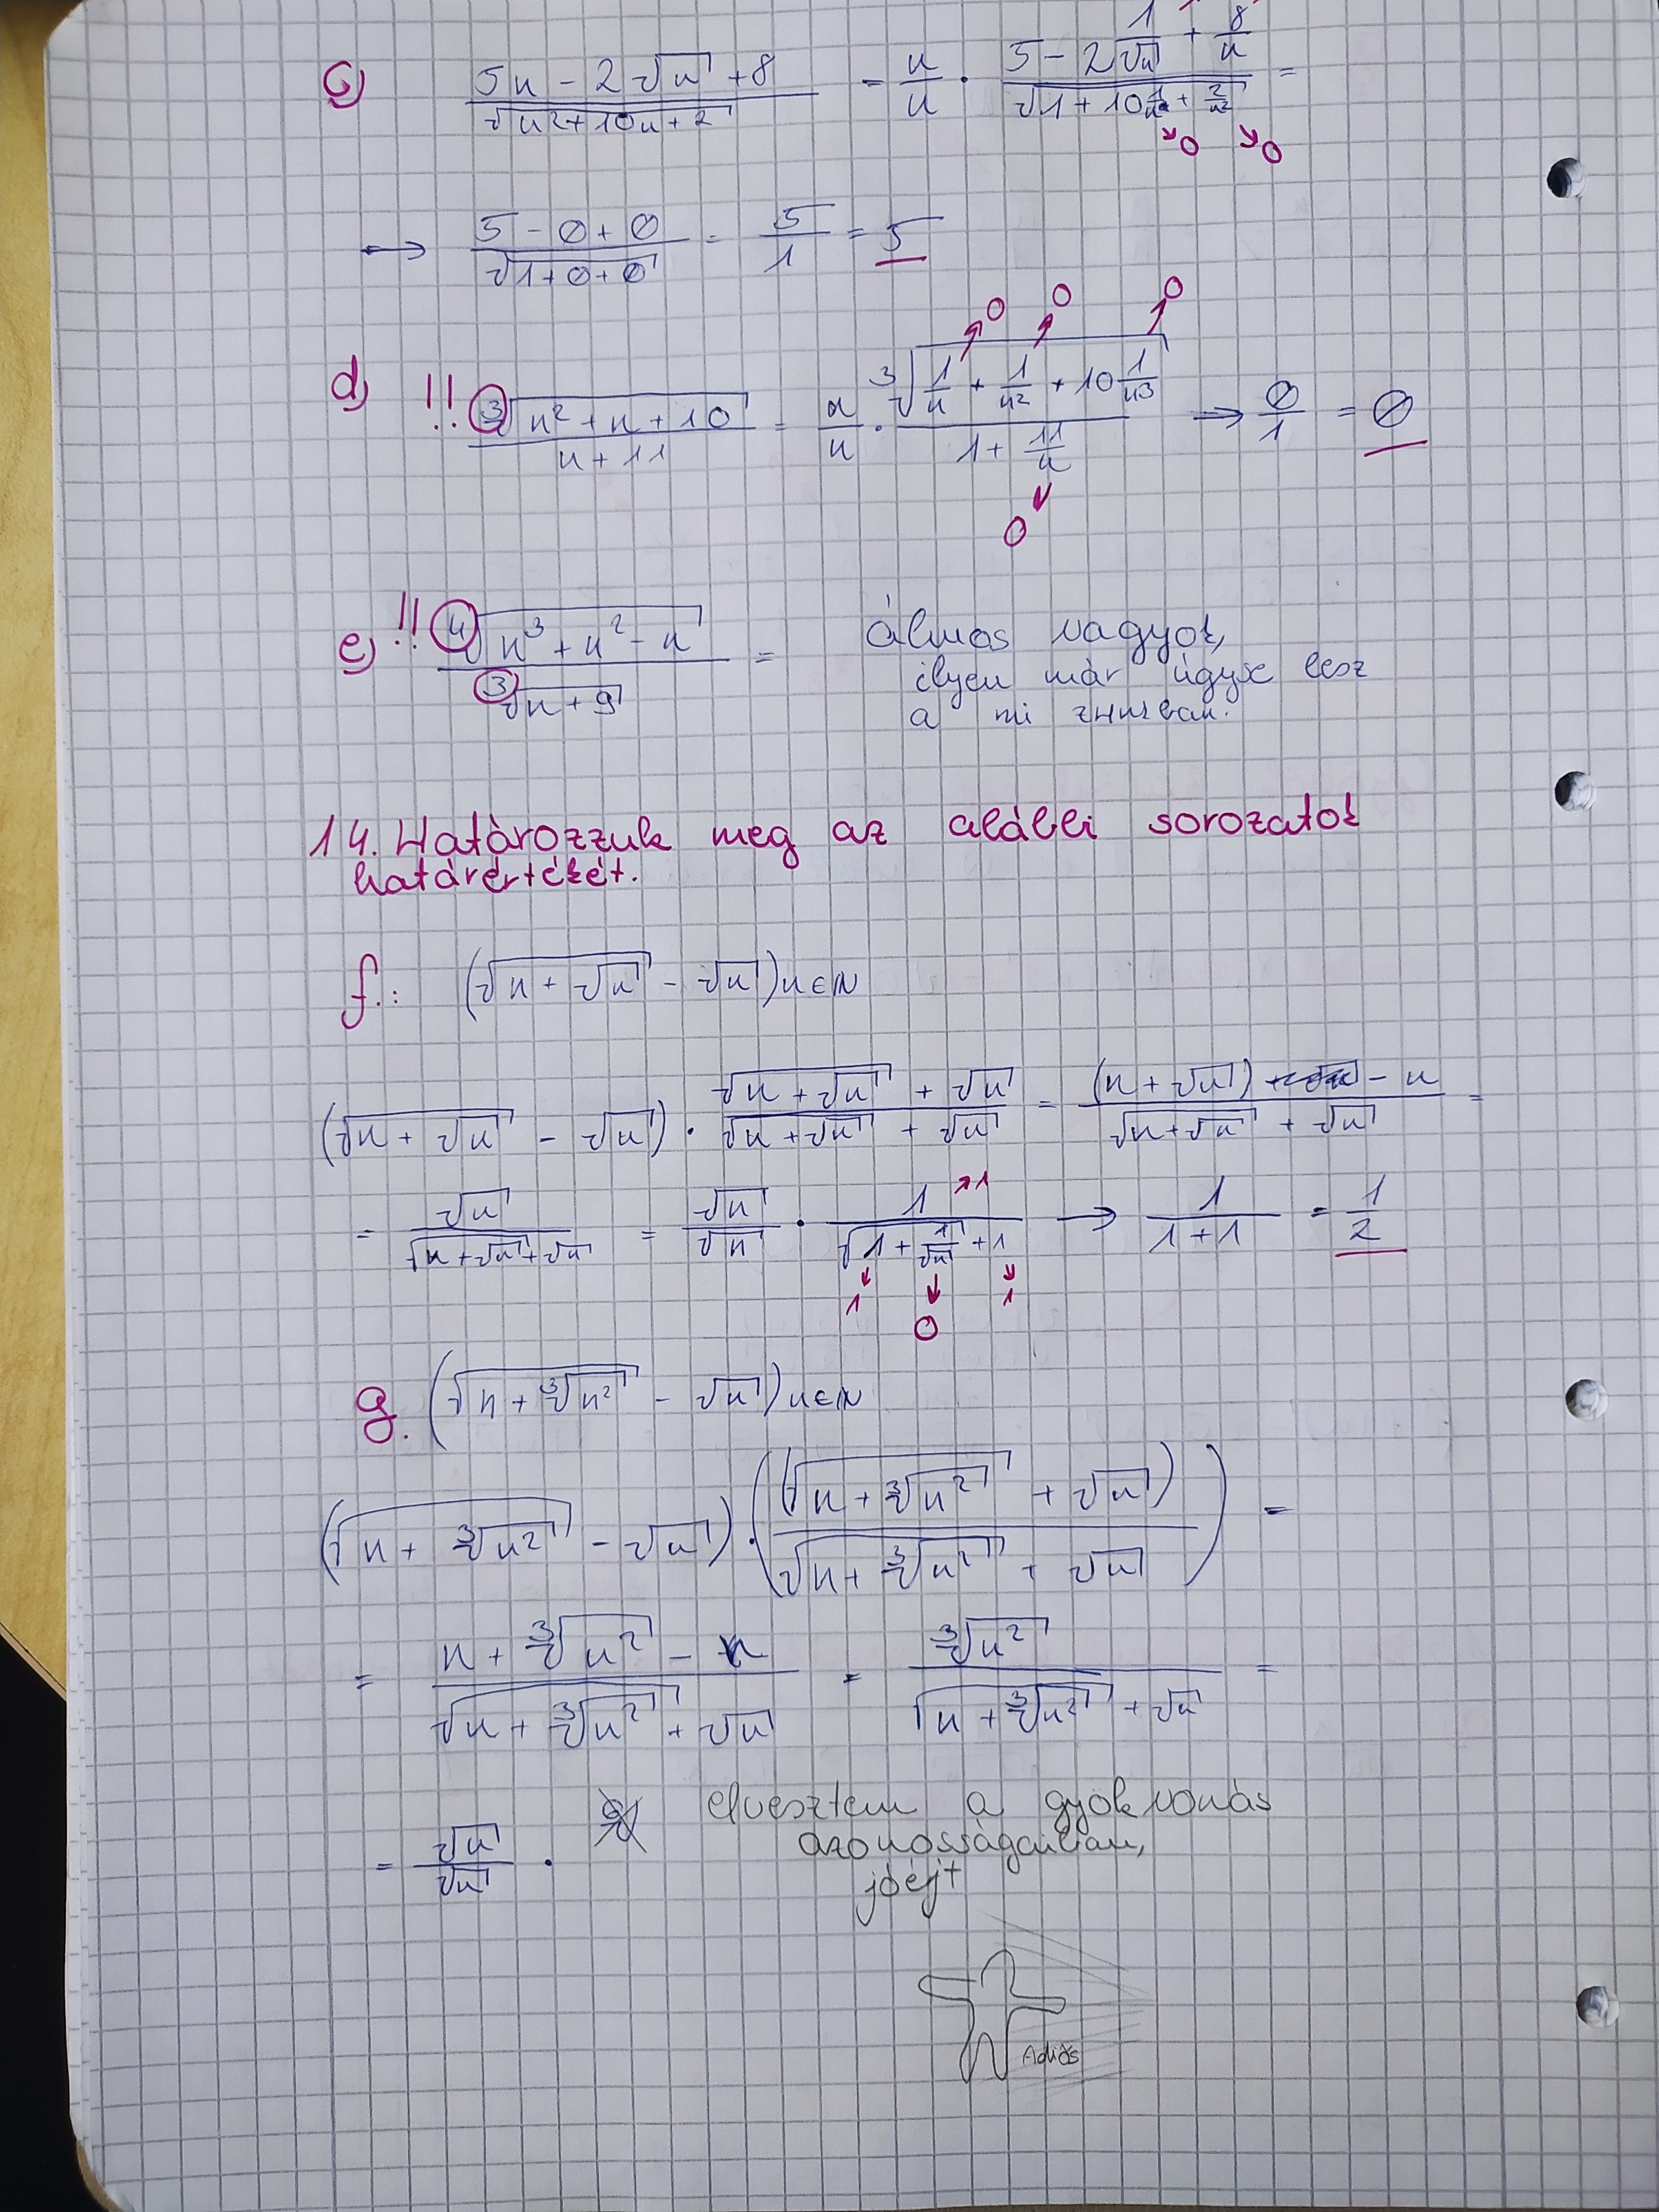 c) (5n - 2√n + 8)/√(n²+10n+2) = n/n · (5 - 2 1/√n + 8/n)/√(1 + 10 1/n + 2/n²) =
↘0 ↘0
→ (5 - 0 + 0)/√(1+0+0) = 5/1 = 5
↗0 ↗0 ↗0
d) !! ³√(n² + n + 10)/(n + 11) = n/n · ³√(1/n + 1/n² + 10 1/n³)/(1 + 11/n) → 0/1 = 0
↓
0
e) !! ⁴√(n³ + n² - n)/³√(n + 9) = álmos vagyok,
ilyen már úgyse lesz
a mi zhnkban.
14. Határozzuk meg az alábbi sorozatok
határértékét.
f.: (√(n + √n) - √n) n∈ℕ
(√(n + √n) - √n) · (√(n + √n) + √n)/(√(n + √n) + √n) = ((n + √n) - n)/(√(n+√n) + √n) =
= √n/(√(n + √n) + √n) = √n/√n · 1/(√(1 + 1/√n) + 1) ↗1 → 1/(1+1) = 1/2
↓1 ↓0 ↘1
g. (√(n + ³√n²) - √n) n∈ℕ
(√(n + ³√n²) - √n) · ((√(n + ³√n²) + √n)/(√(n + ³√n²) + √n)) =
= (n + ³√n² - n)/(√(n + ³√n²) + √n) = ³√n²/(√(n + ³√n²) + √n) =
= √n/√n · elvesztem a gyökvonás
azonosságaiban,
jóéjt
Adiós